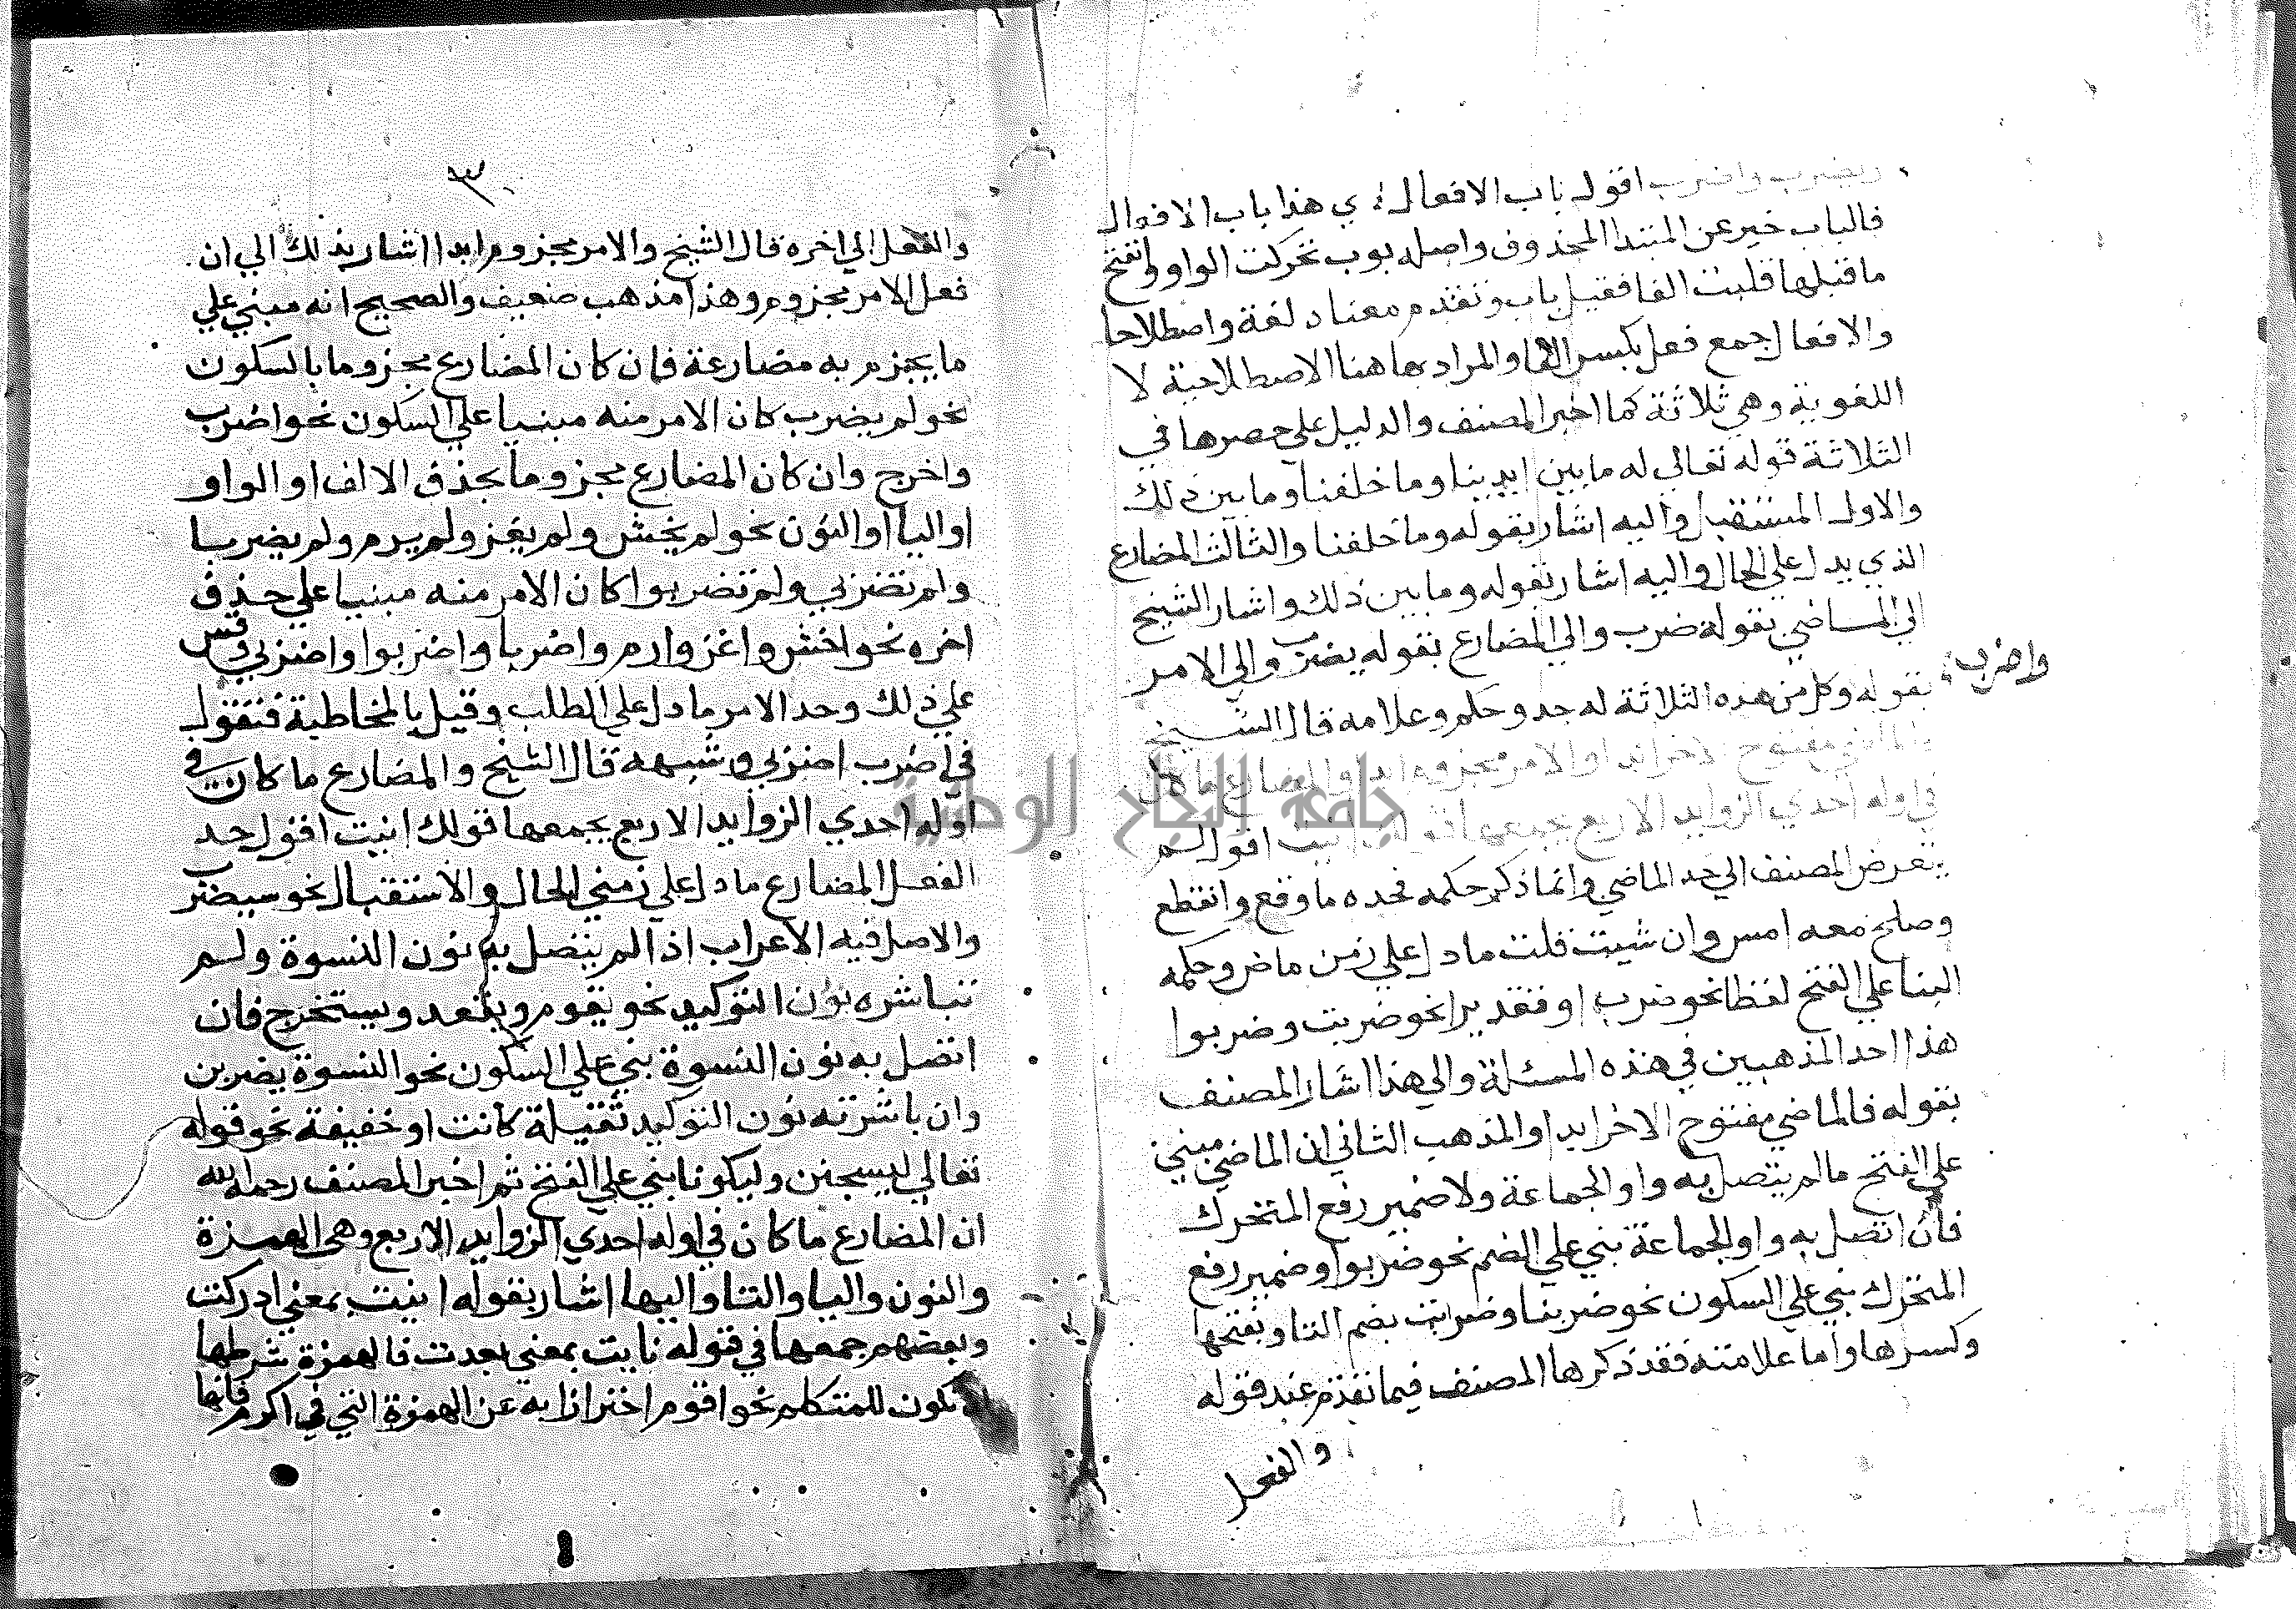 ويضرب واضرب اقول باب الافعال اي هذا باب الافعال
فالباب خبر عن المبتدا المحذوف واصله بوب تحركت الواو وانفتح
ما قبلها قلبت الفا فقيل باب وتقدم معناه لغة واصطلاحا
والافعال جمع فعل بكسر الفا والمراد بها هنا الاصطلاحية لا
اللغوية وهي ثلاثة كما اخبر المصنف والدليل علي حصرها في
الثلاثة قوله تعالي له ما بين ايدينا وما خلفنا وما بين ذلك
والاول المستقبل واليه اشار بقوله وما خلفنا والثالث المضارع
الذي يدل علي الحال واليه اشار بقوله وما بين ذلك واشار الشيخ
الي الماضي بقوله ضرب والي المضارع بقوله يضرب والي الامر
بقوله وكل من هذه الثلاثة له حد وحكم وعلامه قال الشيخ
واضرب
فالماضي مفتوح الاخر ابدا والامر مجزوم ابدا والمضارع ما كان
في اوله احدي الزوايد الاربع يجمعها قولك انيت اقول لم
يتعرض المصنف الي حد الماضي وانما ذكر حكمه فحده ما وقع وانقطع
وصلح معه امس وان شيت قلت ما دل علي زمن ماض وحكمه
البنا علي الفتح لفظا نحو ضرب او تقديرا نحو ضربت وضربوا
هذا احد المذهبين في هذه المسئلة والي هذا اشار المصنف
بقوله فالماضي مفتوح الاخر ابدا والمذهب الثاني ان الماضي مبني
علي الفتح مالم يتصل به واو الجماعة ولا ضمير رفع المتحرك
فان اتصل به واو الجماعة بني علي الضم نحو ضربوا وضمير رفع
المتحرك بني علي السكون نحو ضربنا وضربت بضم التا وبفتحها
وكسرها واما علامته فقد ذكرها المصنف فيما تقدم عند قوله
والفعل
٣
والفعل الي اخره قال الشيخ والامر مجزوم ابدا اشار بذلك الي ان
فعل الامر مجزوم وهذا مذهب ضعيف والصحيح انه مبني علي
ما يجزم به مضارعة فان كان المضارع مجزوما بالسكون
نحو لم يضرب كان الامر منه مبنيا علي السكون نحو اضرب
واخرج وان كان المضارع مجزوما بحذف الالف او الواو
او اليا او النون نحو لم يخش ولم يغز ولم يرم ولم يضربا
ولم تضربي ولم تضربوا كان الامر منه مبنيا علي حذف
اخره نحو اخش واغز وارم واضربا واضربوا واضربي وقس
علي ذلك وحد الامر ما دل علي الطلب وقيل يا المخاطبة فتقول
في اضرب اضربي وشبهه قال الشيخ والمضارع ما كان في
اوله احدي الزوايد الاربع يجمعها قولك انيت اقول حد
الفعل المضارع ما دل علي زمني الحال والاستقبال نحو سيضرب
والاصل فيه الاعراب اذا لم يتصل به نون النسوة ولم
تباشره نون التوكيد نحو يقوم ويقعد ويستخرج فان
اتصل به نون النسوة بني علي السكون نحو النسوة يضربن
وان باشرته نون التوكيد ثقيلة كانت او خفيفة نحو قوله
تعالي ليسجنن وليكونا بني علي الفتح ثم اخبر المصنف رحمه الله
ان المضارع ما كان في اوله احدي الزوايد الاربع وهي الهمزة
والنون واليا والتا واليها اشار بقوله انيت بمعني ادركت
وبعضهم جمعها في قوله نايت بمعني بعدت فالهمزة شرطها
ان تكون للمتكلم نحو اقوم احترازا به عن الهمزة التي في اكرم فانها
جامعة النجاح الوطنية